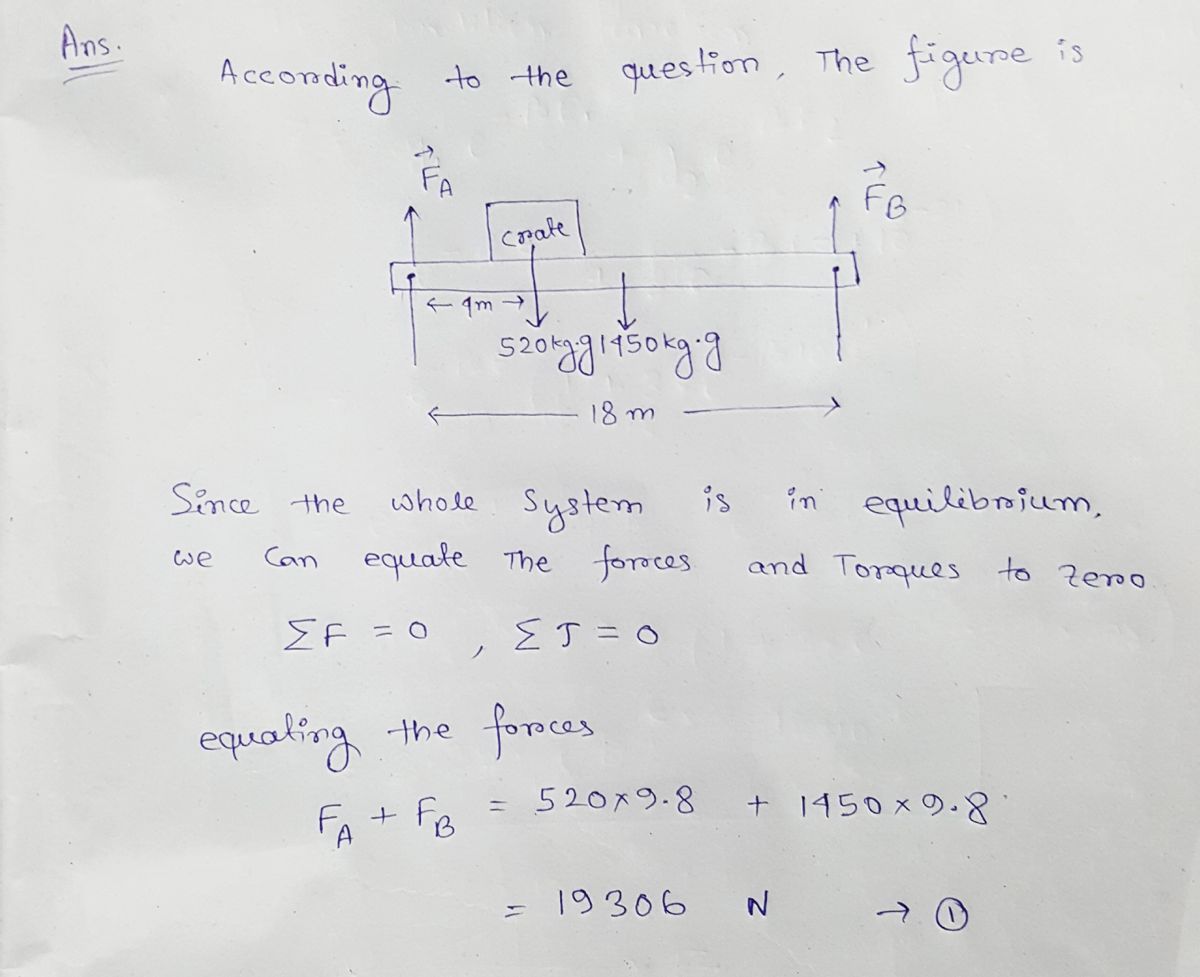 Ans.
According to the question, The figure is
F_A
F_B
crate
← 4m →
520kg.g 1450kg.g
← 18 m →
Since the whole system is in equilibrium,
we can equate The forces and Torques to zero.
ΣF = 0 , Στ = 0
equating the forces
F_A + F_B = 520×9.8 + 1450×9.8
= 19306 N → ①